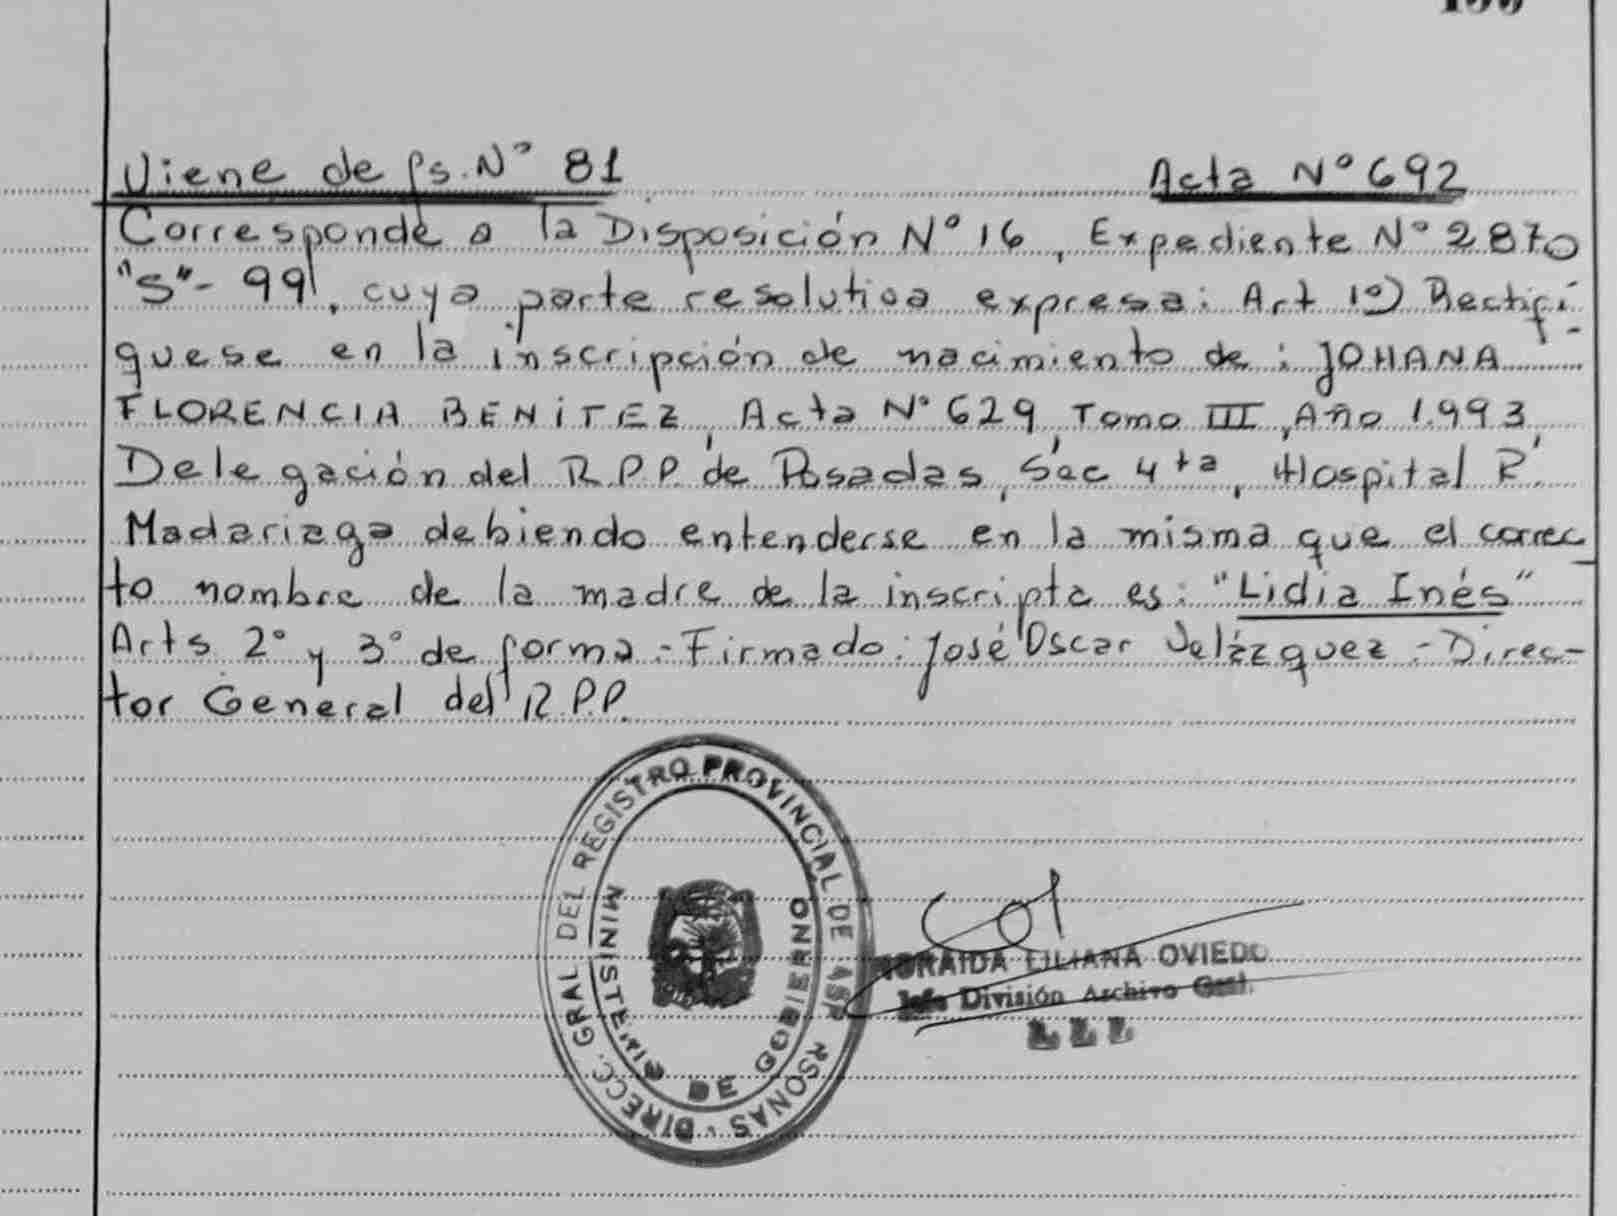 Viene de fs. Nº 81
Acta Nº 692
Corresponde a la Disposición Nº 16, Expediente Nº 2870
"S"- 99, cuya parte resolutiva expresa: Art 1º) Rectifí-
quese en la inscripción de nacimiento de: JOHANA
FLORENCIA BENITEZ, Acta Nº 629, Tomo III, Año 1.993,
Delegación del R.P.P. de Posadas, Sec 4ta, Hospital R.
Madariaga debiendo entenderse en la misma que el correc-
to nombre de la madre de la inscripta es: "Lidia Inés"
Arts 2º y 3º de forma.- Firmado: José Oscar Velázquez - Direc-
tor General del R.P.P.
DIRECC. GRAL DEL REGISTRO PROVINCIAL DE RSONAS
MINISTERIO DE GOBIERNO
LILIANA OVIEDO
Jefe División Archivo Gral.